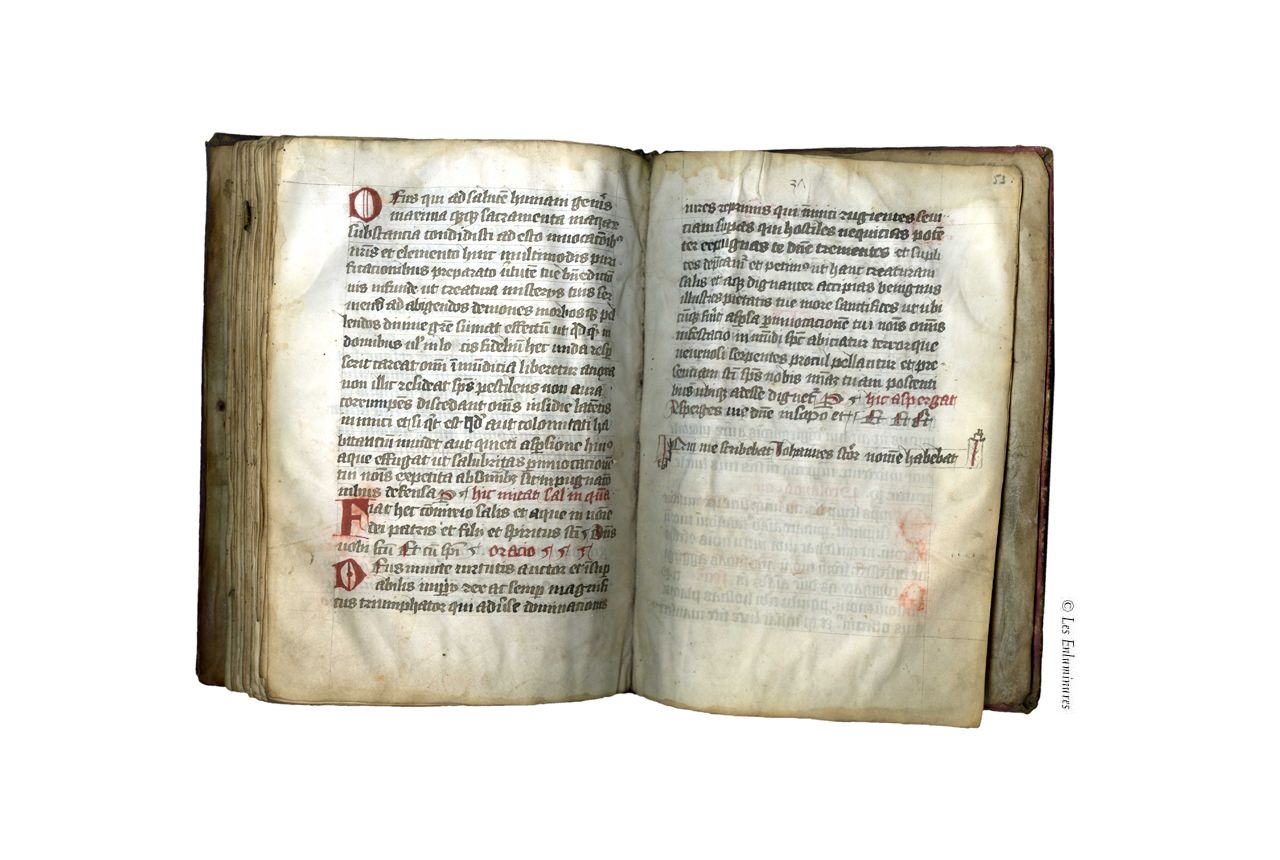 Deus qui ad salutē humani genїs
maxima q̄q̄ sacramenta in aquaȝ
substantia condidisti ad esto invocatōib⁹
nr̄is et elemento huic multimodis puri
ficationibus preparato v̄tutē tue bn̄edictōīs
infunde ut creatura misterijs tuis ser
viens ad abigendos demones morbos q̨ pel
lendos divine gr̄e sumat effectū ut q̄d q̄d in
domibus vl̄ in lo cis fideliū hec unda resp̄
serit careat om̄i īmūdicia liberetur a noxa
non illic resideat sp̄s pestilens non aura
corrumpes discedant om̄s insidie latentis
inimici et si qt̄ est qd̄ aut colomitati ha
bitanciū invidet aut quieti asp̄sione hui⁹
aque effugat ut salubritas p invocacionē
tui nōis expetita ab om̄ib⁹ sit inpugnacō
nibus defensa P hic mittat sal in quā
Fiat hec cōmixcio salis et aque in noīe
dei patris et filii et spiritus sc̄ti Dn̄s
vobiscū Et cū sp̄i oracio
Deus invicte virtutis auctor et insup
abilis imp̄ij rex ac semp̄ magnifi
cus triumphator qui adūse dominacionis
38
53.
vires rep̄mis qui inimici rugientis sevi
ciam supas qui hostiles nequicias potē
ter expugnas te dn̄e trementes et supli
ces dep̄camᵘ et petim⁹ ut hanc creaturam
salis et aq̄ dignanter accipias benignus
illustres pietatis tue more sanctifices ut ubi
cūq̨ fūt asp̄sa p invocacionē tui nōis om̄is
infestacio inmūdi sp̄c abiciatur terrorque
venenosi serpentis procul pellantur et pre
sentiam sc̄ti sp̄s nobis m̄iaȝ tuam poscenti
bus ubiq̨ adesse dignet̄ P hic aspergat
Asperges me dn̄e insopo et
Qui me scribebat Iohannes stōr nomē habebat
© Les Enluminures